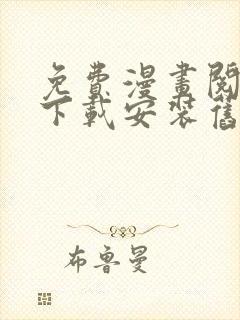 免費漫畫閱
下載安裝舊
布魯曼